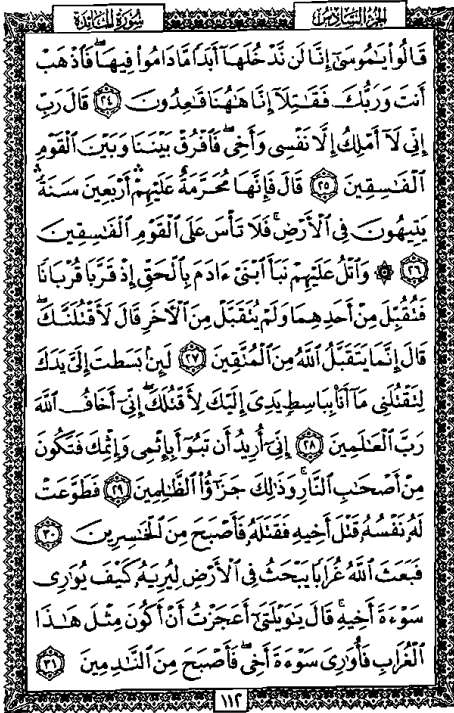 سُورَةُ المَائدة الجزء السادس
قَالُوا۟ يَـٰمُوسَىٰٓ إِنَّا لَن نَّدْخُلَهَآ أَبَدًا مَّا دَامُوا۟ فِيهَا ۖ فَٱذْهَبْ
أَنتَ وَرَبُّكَ فَقَـٰتِلَآ إِنَّا هَـٰهُنَا قَـٰعِدُونَ ٢٤ قَالَ رَبِّ
إِنِّى لَآ أَمْلِكُ إِلَّا نَفْسِى وَأَخِى ۖ فَٱفْرُقْ بَيْنَنَا وَبَيْنَ ٱلْقَوْمِ
ٱلْفَـٰسِقِينَ ٢٥ قَالَ فَإِنَّهَا مُحَرَّمَةٌ عَلَيْهِمْ ۛ أَرْبَعِينَ سَنَةً ۛ
يَتِيهُونَ فِى ٱلْأَرْضِ ۚ فَلَا تَأْسَ عَلَى ٱلْقَوْمِ ٱلْفَـٰسِقِينَ
٢٦ ۞ وَٱتْلُ عَلَيْهِمْ نَبَأَ ٱبْنَىْ ءَادَمَ بِٱلْحَقِّ إِذْ قَرَّبَا قُرْبَانًا
فَتُقُبِّلَ مِنْ أَحَدِهِمَا وَلَمْ يُتَقَبَّلْ مِنَ ٱلْـَٔاخَرِ قَالَ لَأَقْتُلَنَّكَ ۖ
قَالَ إِنَّمَا يَتَقَبَّلُ ٱللَّهُ مِنَ ٱلْمُتَّقِينَ ٢٧ لَئِنۢ بَسَطتَ إِلَىَّ يَدَكَ
لِتَقْتُلَنِى مَآ أَنَا۠ بِبَاسِطٍ يَدِىَ إِلَيْكَ لِأَقْتُلَكَ ۖ إِنِّىٓ أَخَافُ ٱللَّهَ
رَبَّ ٱلْعَـٰلَمِينَ ٢٨ إِنِّىٓ أُرِيدُ أَن تَبُوٓأَ بِإِثْمِى وَإِثْمِكَ فَتَكُونَ
مِنْ أَصْحَـٰبِ ٱلنَّارِ ۚ وَذَٰلِكَ جَزَٰٓؤُا۟ ٱلظَّـٰلِمِينَ ٢٩ فَطَوَّعَتْ
لَهُۥ نَفْسُهُۥ قَتْلَ أَخِيهِ فَقَتَلَهُۥ فَأَصْبَحَ مِنَ ٱلْخَـٰسِرِينَ ٣٠
فَبَعَثَ ٱللَّهُ غُرَابًا يَبْحَثُ فِى ٱلْأَرْضِ لِيُرِيَهُۥ كَيْفَ يُوَٰرِى
سَوْءَةَ أَخِيهِ ۚ قَالَ يَـٰوَيْلَتَىٰٓ أَعَجَزْتُ أَنْ أَكُونَ مِثْلَ هَـٰذَا
ٱلْغُرَابِ فَأُوَٰرِىَ سَوْءَةَ أَخِى ۖ فَأَصْبَحَ مِنَ ٱلنَّـٰدِمِينَ ٣١
١١٢